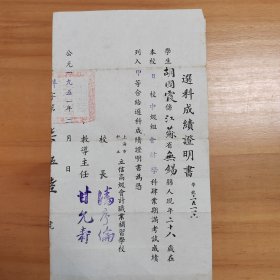 選科成績證明書
學生胡國霞係江蘇省無錫縣人現年二十八歲在
本校日校中級組會計學科肄業期滿考試成績
列入甲等合給選科成績證明書爲憑
上海市
私立
立信高級會計職業補習學校
校長
教導主任
公元一九五一年 月 日
號